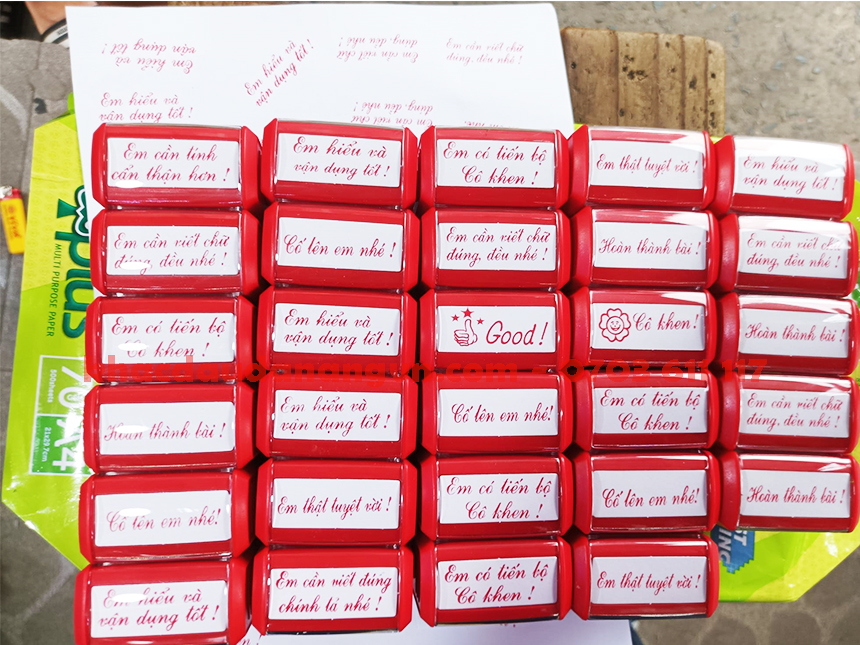 Em hiểu và
vận dụng tốt !
Em hiểu và
vận dụng tốt !
Em cần viết chữ
đúng, đều nhé !
Em cần viết chữ
đúng, đều nhé !
Em hiểu và
vận dụng tốt !
Em cần viết chữ
đúng, đều nhé !
Em cần tính
cẩn thận hơn !
Em hiểu và
vận dụng tốt !
Em có tiến bộ
Cô khen !
Em thật tuyệt vời !
Em hiểu và
vận dụng tốt !
Em cần viết chữ
đúng, đều nhé !
Cố lên em nhé !
Em cần viết chữ
đúng, đều nhé !
Hoàn thành bài !
Em cần viết chữ
đúng, đều nhé !
Em có tiến bộ
Cô khen !
Em hiểu và
vận dụng tốt !
Good!
Cô khen!
Hoàn thành bài !
Hoàn thành bài !
Em hiểu và
vận dụng tốt !
Cố lên em nhé!
Em có tiến bộ
Cô khen !
Em cần viết chữ
đúng, đều nhé !
Cố lên em nhé!
Em thật tuyệt vời !
Em có tiến bộ
Cô khen !
Cố lên em nhé!
Hoàn thành bài !
Em hiểu và
vận dụng tốt !
Em cần viết đúng
chính tả nhé !
Em có tiến bộ
Cô khen !
Em thật tuyệt vời !
plus
MULTI PURPOSE PAPER
500sheets
70
A4
21x29.7cm